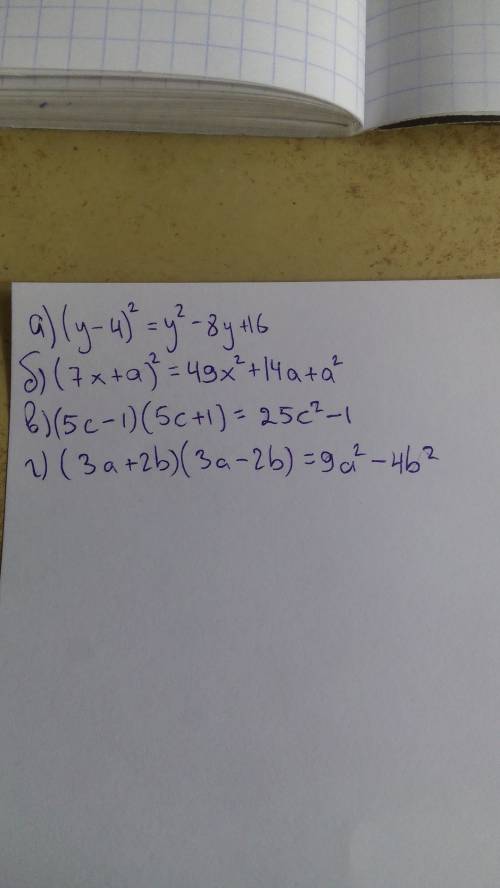 а) (y-4)² = y² - 8y + 16
б) (7x+a)² = 49x² + 14a + a²
в) (5c-1)(5c+1) = 25c² - 1
г) (3a+2b)(3a-2b) = 9a² - 4b²